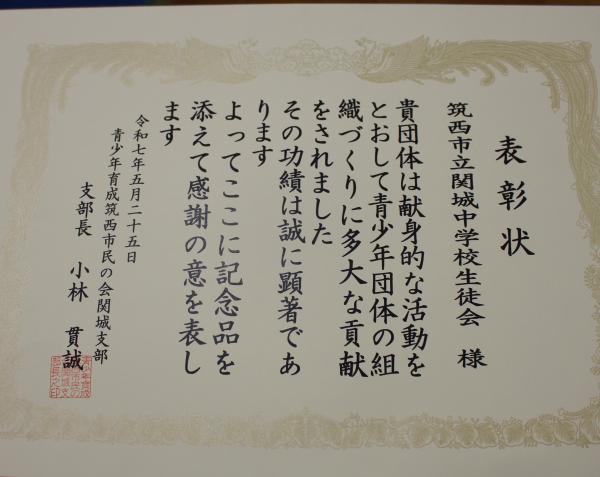 表彰状
筑西市立関城中学校生徒会 様
貴団体は献身的な活動を
とおして青少年団体の組
織づくりに多大な貢献
をされました
その功績は誠に顕著であ
ります
よってここに記念品を
添えて感謝の意を表し
ます
令和七年五月二十五日
青少年育成筑西市民の会関城支部
支部長 小林 貫誠